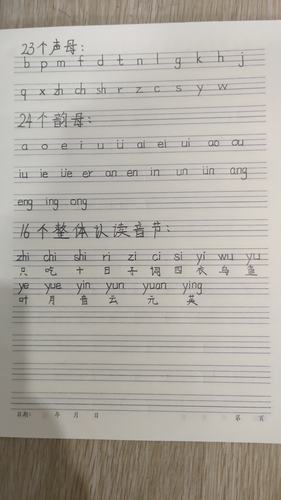 23个声母：
b p m f d t n l g k h j
q x zh ch sh r z c s y w
24个韵母：
a o e i u ü ai ei ui ao ou
iu ie üe er an en in un ün ang
eng ing ong
16个整体认读音节：
zhi chi shi ri zi ci si yi wu yu
只 吃 十 日 子 词 四 衣 乌 鱼
ye yue yin yun yuan ying
叶 月 音 云 元 英
日期： 年 月 日 第 页